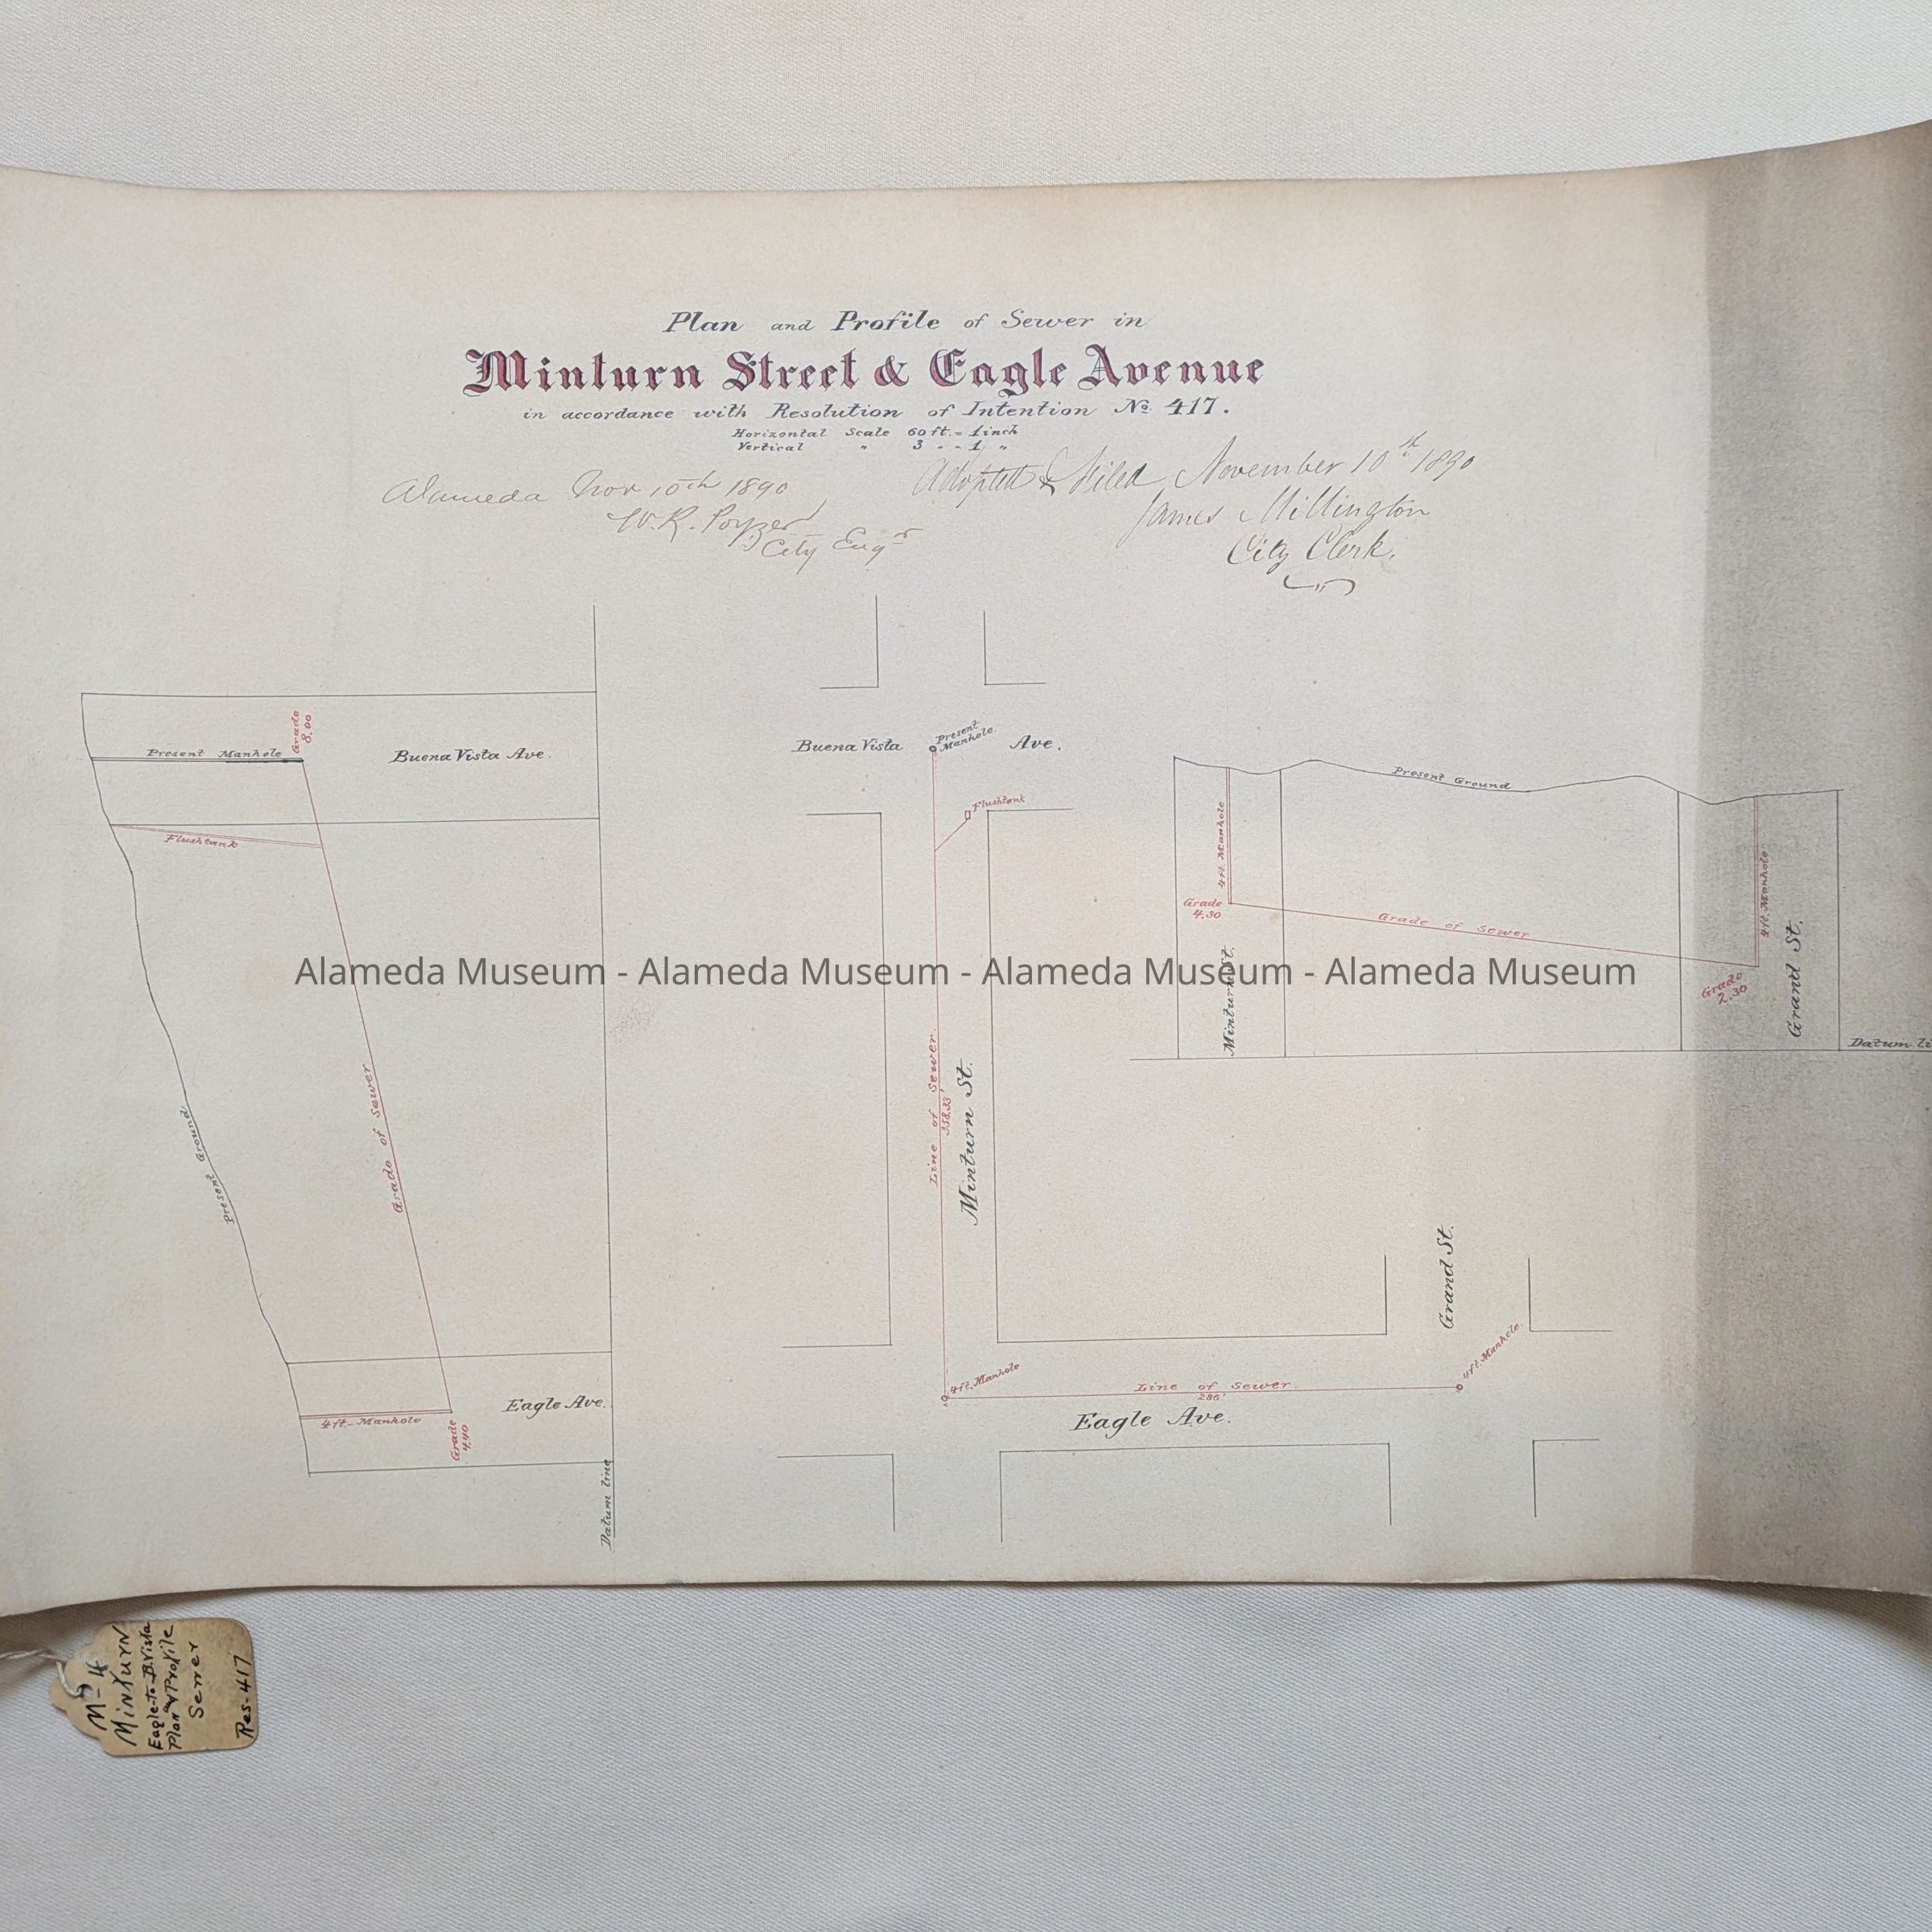 Plan and Profile of Sewer in
Minturn Street & Eagle Avenue
in accordance with Resolution of Intention No. 417.
Horizontal Scale 60 ft. = 1 inch
Vertical " 3 " - 1 "
Alameda Nov 10th 1890
W. R.
City Engr
Adopted & Filed November 10th 1890
James Millington
City Clerk.
Present Manhole
Grade
8.00
Buena Vista Ave.
Flushtank
Present Ground
Grade of Sewer
4 ft. Manhole
Grade
4.40
Eagle Ave.
Datum line
Buena Vista Ave.
Present
Manhole.
Flushtank
Line of Sewer
358.33'
Minturn St.
4 ft. Manhole
Line of Sewer.
286'
Eagle Ave.
Grand St.
4 ft. Manhole.
Present Ground
4 ft. Manhole
Grade
4.30
Grade of Sewer
Minturn St.
4 ft. Manhole
Grade
2.30
Grand St.
Datum li
Alameda Museum - Alameda Museum - Alameda Museum - Alameda Museum
M-4
Minturn
Eagle-to-B.Vista
Plan & Profile
Sewer
Res-417